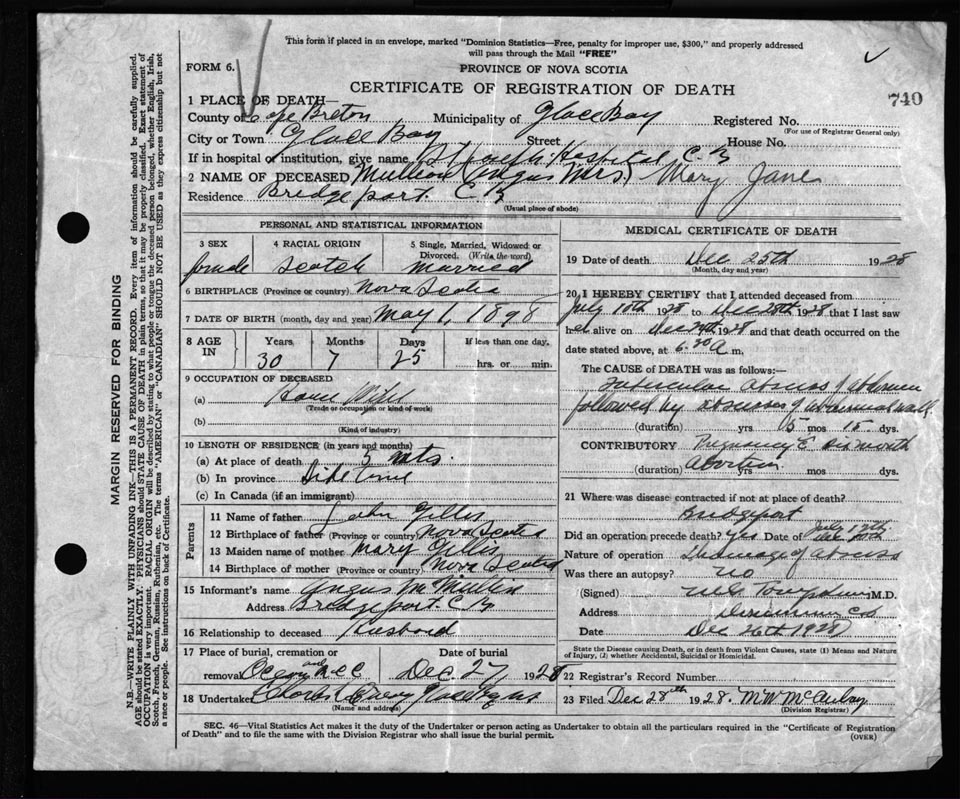 This form if placed in an envelope, marked "Dominion Statistics—Free, penalty for improper use, $300," and properly addressed
will pass through the Mail "FREE"
FORM 6.
PROVINCE OF NOVA SCOTIA
CERTIFICATE OF REGISTRATION OF DEATH
740
1 PLACE OF DEATH—
County of Cape Breton Municipality of Glace Bay Registered No.
(For use of Registrar General only)
City or Town Glace Bay Street House No.
If in hospital or institution, give name St Joseph Hospital C.B
2 NAME OF DECEASED (Angus Mrs.) Mary Jane
Residence Bridgeport. C.B
(Usual place of abode)
PERSONAL AND STATISTICAL INFORMATION
3 SEX 4 RACIAL ORIGIN 5 Single, Married, Widowed or Divorced. (Write the word)
female Scotch married
6 BIRTHPLACE (Province or country) Nova Scotia
7 DATE OF BIRTH (month, day and year) May 1, 1898
8 AGE IN Years Months Days If less than one day,
30 7 25 hrs. or min.
9 OCCUPATION OF DECEASED
(a) House Wife
(Trade or occupation or kind of work)
(b)
(Kind of industry)
10 LENGTH OF RESIDENCE (in years and months)
(a) At place of death 5 mts.
(b) In province Life time
(c) In Canada (if an immigrant)
Parents
11 Name of father John Gillis
12 Birthplace of father (Province or country) Nova Scotia
13 Maiden name of mother Mary Gillis
14 Birthplace of mother (Province or country) Nova Scotia
15 Informant's name Angus McMullin
Address Bridgeport. C.B.
16 Relationship to deceased Husband
17 Place of burial, cremation or removal Date of burial
Dec. 27, 1928
18 Undertaker
(Name and address)
MEDICAL CERTIFICATE OF DEATH
19 Date of death Dec 25th 1928
(Month, day and year)
20 I HEREBY CERTIFY that I attended deceased from
July 1928 to 1928 that I last saw
her alive on Dec 24th 1928 and that death occurred on the
date stated above, at 6.30 a m.
The CAUSE of DEATH was as follows:—
abscess of abdomen
followed by abscesses of abdominal wall
(duration) yrs 5 mos 15 dys.
CONTRIBUTORY Pregnancy & six month
Abortion
(duration) yrs mos dys.
21 Where was disease contracted if not at place of death?
Bridgeport
Did an operation precede death? Yes Date of July 17th
Nature of operation Drainage of abscess
Was there an autopsy? no
(Signed) M.D.
Address
Date Dec 26th 1928
State the Disease causing Death, or in death from Violent Causes, state (1) Means and Nature of Injury, (2) whether Accidental, Suicidal or Homicidal.
22 Registrar's Record Number
23 Filed Dec 28th 1928. M W McAulay
(Division Registrar)
SEC. 46—Vital Statistics Act makes it the duty of the Undertaker or person acting as Undertaker to obtain all the particulars required in the "Certificate of Registration
of Death" and to file the same with the Division Registrar who shall issue the burial permit.
(OVER)
MARGIN RESERVED FOR BINDING
N.B.—WRITE PLAINLY WITH UNFADING INK—THIS IS A PERMANENT RECORD. Every item of information should be carefully supplied.
AGE should be stated EXACTLY. PHYSICIANS should STATE CAUSE OF DEATH in plain terms, so that it may be properly classified. Exact statement of
OCCUPATION is very important. RACIAL ORIGIN will be described by stating to what people or tongue the deceased person belonged, whether English, Irish,
Scotch, French, German, Russian, Ruthenian, etc. The terms "AMERICAN" or "CANADIAN" SHOULD NOT BE USED as they express citizenship but not
a race or people. See instructions on back of Certificate.